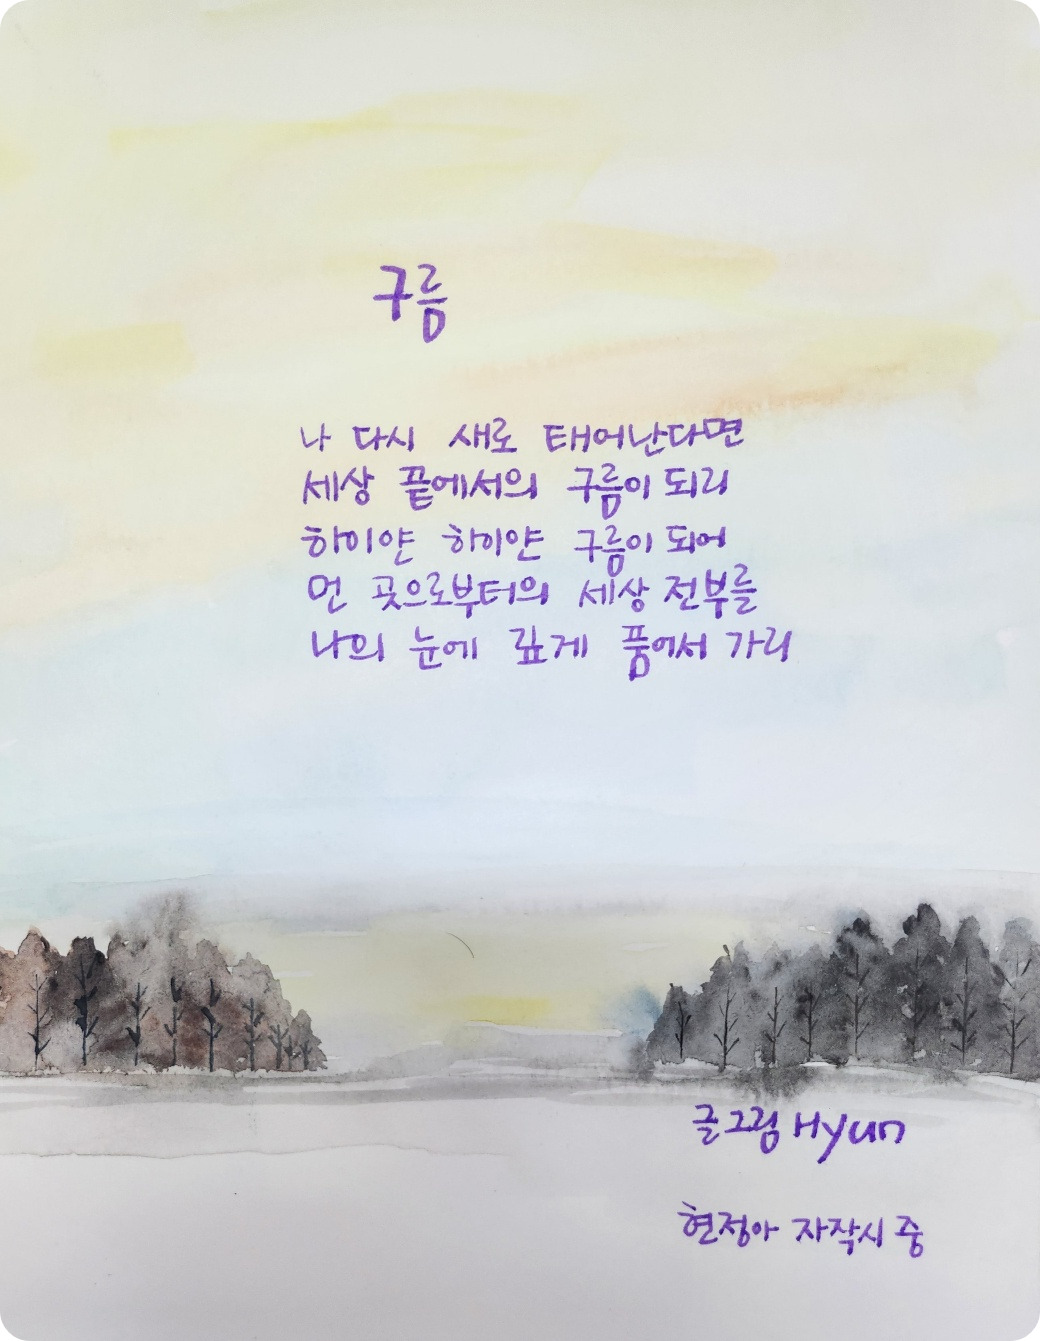 구름
나 다시 새로 태어난다면
세상 끝에서의 구름이 되리
하이얀 하이얀 구름이 되어
먼 곳으로부터의 세상 전부를
나의 눈에 깊게 품어서 가리
글그림 Hyun
현정아 자작시 중